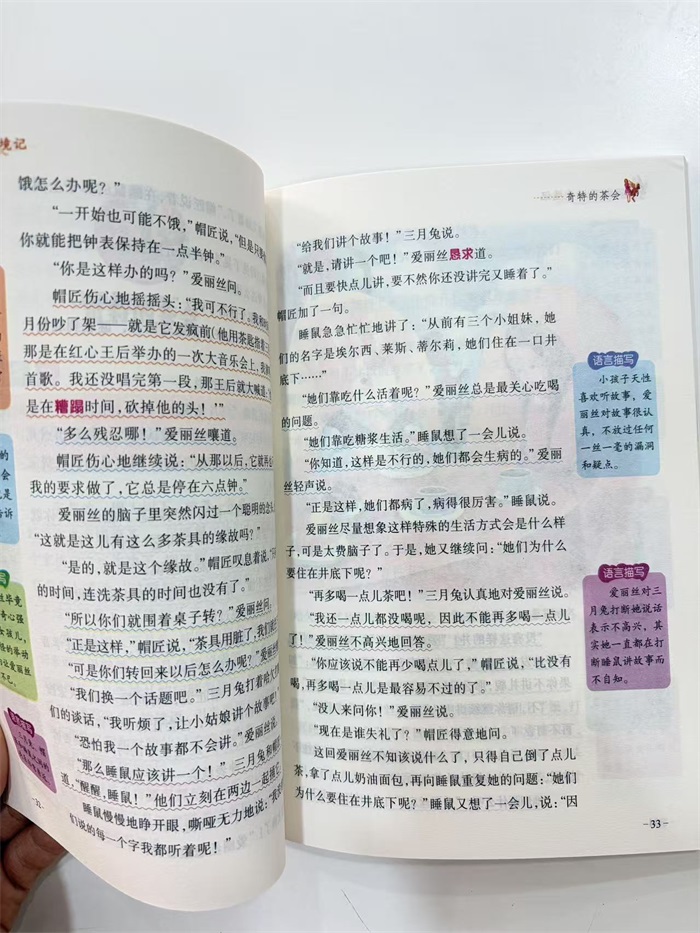 境记
饿怎么办呢？”
“一开始也可能不饿，”帽匠说，“但是只要
你就能把钟表保持在一点半钟。”
“你是这样办的吗？”爱丽丝问。
帽匠伤心地摇摇头：“我可不行了。我和
月份吵了架——就是它发疯前（他用茶匙指着三
那是在红心王后举办的一次大音乐会上，我
首歌。我还没唱完第一段，那王后就大喊道：
是在糟蹋时间，砍掉他的头！’”
“多么残忍哪！”爱丽丝嚷道。
帽匠伤心地继续说：“从那以后，它就再
我的要求做了，它总是停在六点钟。”
爱丽丝的脑子里突然闪过一个聪明的念
“这就是这儿有这么多茶具的缘故吗？”
“是的，就是这个缘故。”帽匠叹息着说，
的时间，连洗茶具的时间也没有了。”
“所以你们就围着桌子转？”爱丽丝问。
“正是这样，”帽匠说，“茶具用脏了，我们就
“可是你们转回来以后怎么办呢？”爱丽丝
“我们换一个话题吧。”三月兔打着哈欠
们的谈话，“我听烦了，让小姑娘讲个故事吧
“恐怕我一个故事都不会讲。”爱丽丝说。
“那么睡鼠应该讲一个！”三月兔和帽
道，“醒醒，睡鼠！”他们立刻在两边一起捅
睡鼠慢慢地睁开眼，嘶哑无力地说：“我
们说的每一个字我都听着呢！”
奇特的茶会
“给我们讲个故事！”三月兔说。
“就是，请讲一个吧！”爱丽丝恳求道。
“而且要快点儿讲，要不然你还没讲完又睡着了。”
帽匠加了一句。
睡鼠急急忙忙地讲了：“从前有三个小姐妹，她
们的名字是埃尔西、莱斯、蒂尔莉，她们住在一口井
底下……”
“她们靠吃什么活着呢？”爱丽丝总是最关心吃喝
的问题。
“她们靠吃糖浆生活。”睡鼠想了一会儿说。
“你知道，这样是不行的，她们都会生病的。”爱丽
丝轻声说。
“正是这样，她们都病了，病得很厉害。”睡鼠说。
爱丽丝尽量想象这样特殊的生活方式会是什么样
子，可是太费脑子了。于是，她又继续问：“她们为什么
要住在井底下呢？”
“再多喝一点儿茶吧！”三月兔认真地对爱丽丝说。
“我还一点儿都没喝呢，因此不能再多喝一点儿
了！”爱丽丝不高兴地回答。
“你应该说不能再少喝点儿了，”帽匠说，“比没有
喝，再多喝一点儿是最容易不过的了。”
“没人来问你！”爱丽丝说。
“现在是谁失礼了？”帽匠得意地问。
这回爱丽丝不知该说什么了，只得自己倒了点儿
茶，拿了点儿奶油面包，再向睡鼠重复她的问题：“她们
为什么要住在井底下呢？”睡鼠又想了一会儿，说：“因
语言描写
小孩子天性
喜欢听故事，爱
丽丝对故事很认
真，不放过任何
一丝一毫的漏洞
和疑点。
语言描写
爱丽丝对三
月兔打断她说话
表示不高兴，其
实她一直都在打
断睡鼠讲故事而
不自知。
-33-